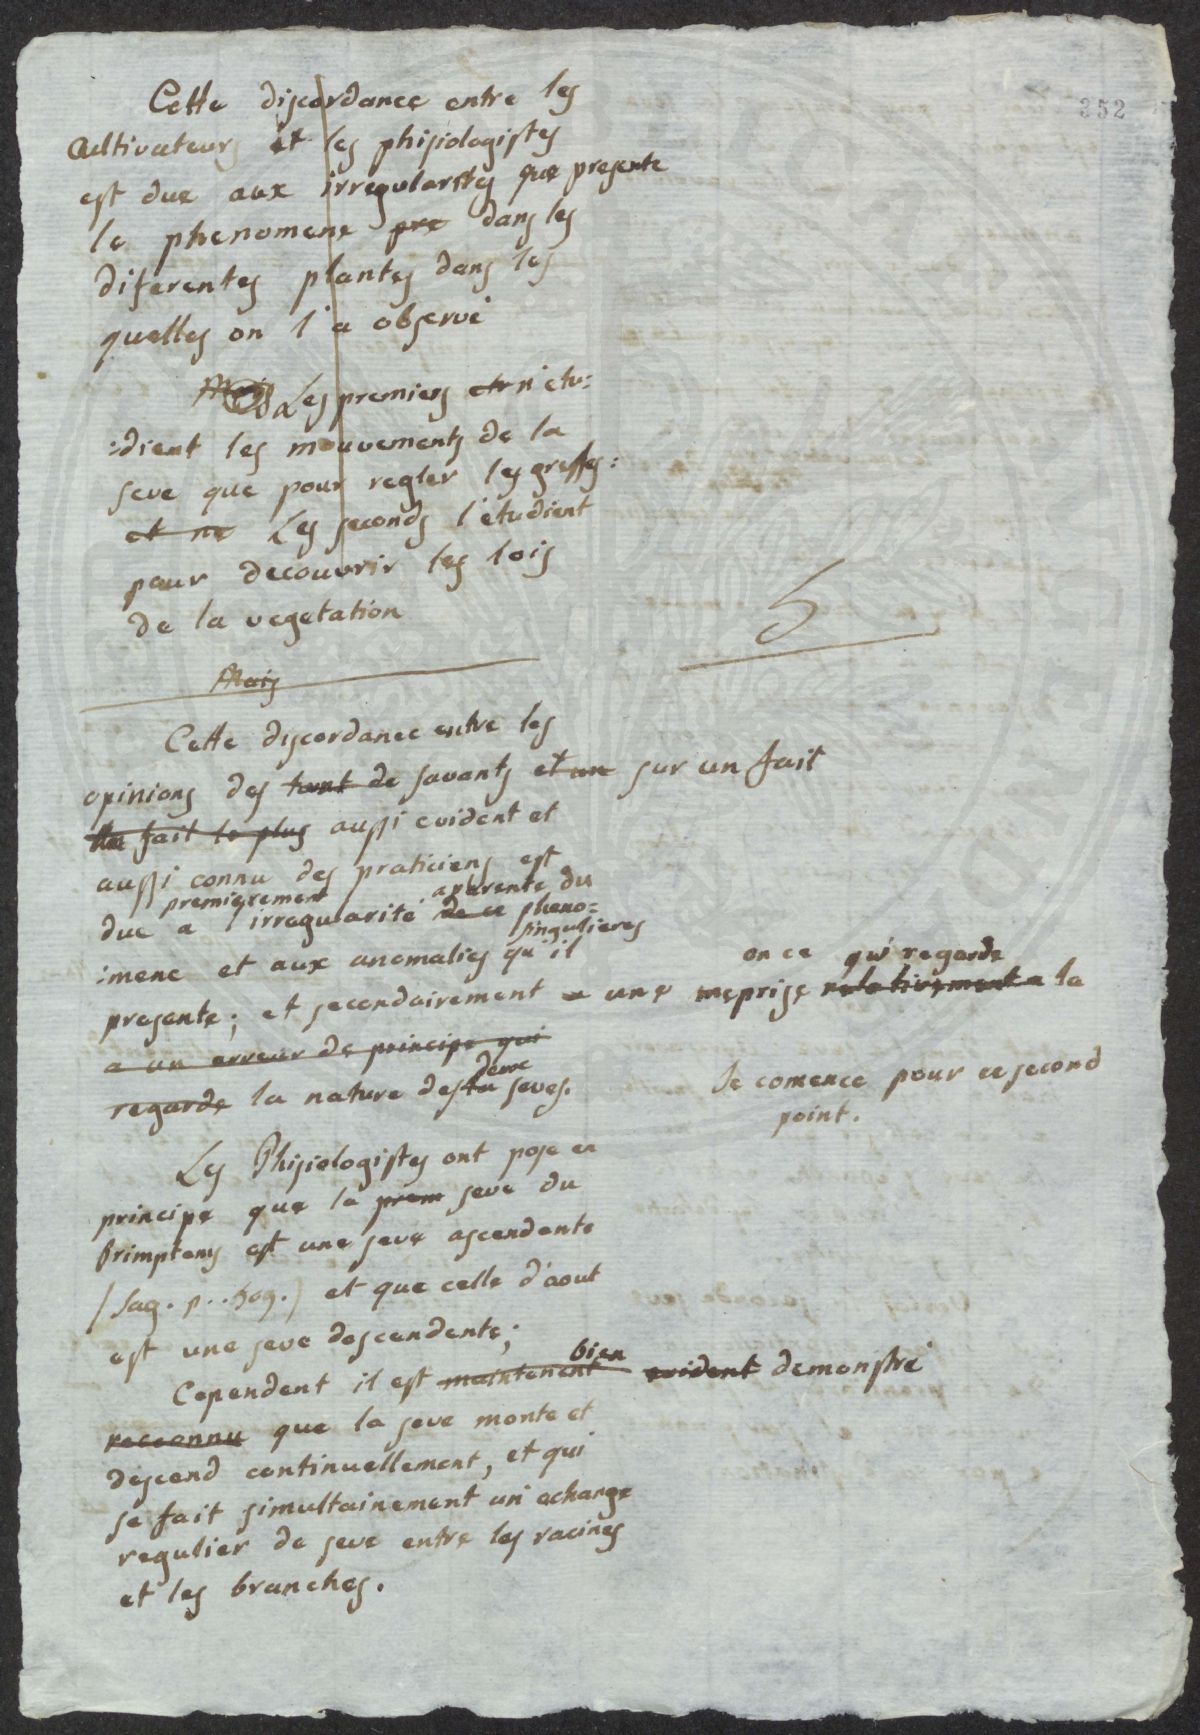 352
Cette discordance entre les
cultivateurs et les phisiologistes
est due aux irregularités que presente
le phenomene pre dans les
diferentes plantes dans les
quelles on l'a observé
Les premiers n'etu=
=dient les mouvements de la
seve que pour regler les greffes:
et ne Les seconds l'etudient
pour decouvrir les lois
de la vegetation
5
Mais
Cette discordance entre les
opinions des tant de savants et un sur un fait
fait le plus aussi evident et
aussi connu des praticiens est
premierement aparente du
due a l'irregularité de ce pheno=
singulieres
=mene et aux anomalies qu'il
en ce qui regarde
presente; et secondairement a une meprise relativement a la
a un erreur de principe qui
deux
regarde la nature des la seves.
Je comence pour ce second
point.
Les Phisiologistes ont posé en
principe que la prem seve du
Primptems est une seve ascendente
/ Sag. p.. 509. / et que celle d'aout
est une seve descendente;
bien
Cependent il est maintenent evident demonstré
recconnu que la seve monte et
descend continuellement, et qui
se fait simultainement un echange
regulier de seve entre les racines
et les branches.